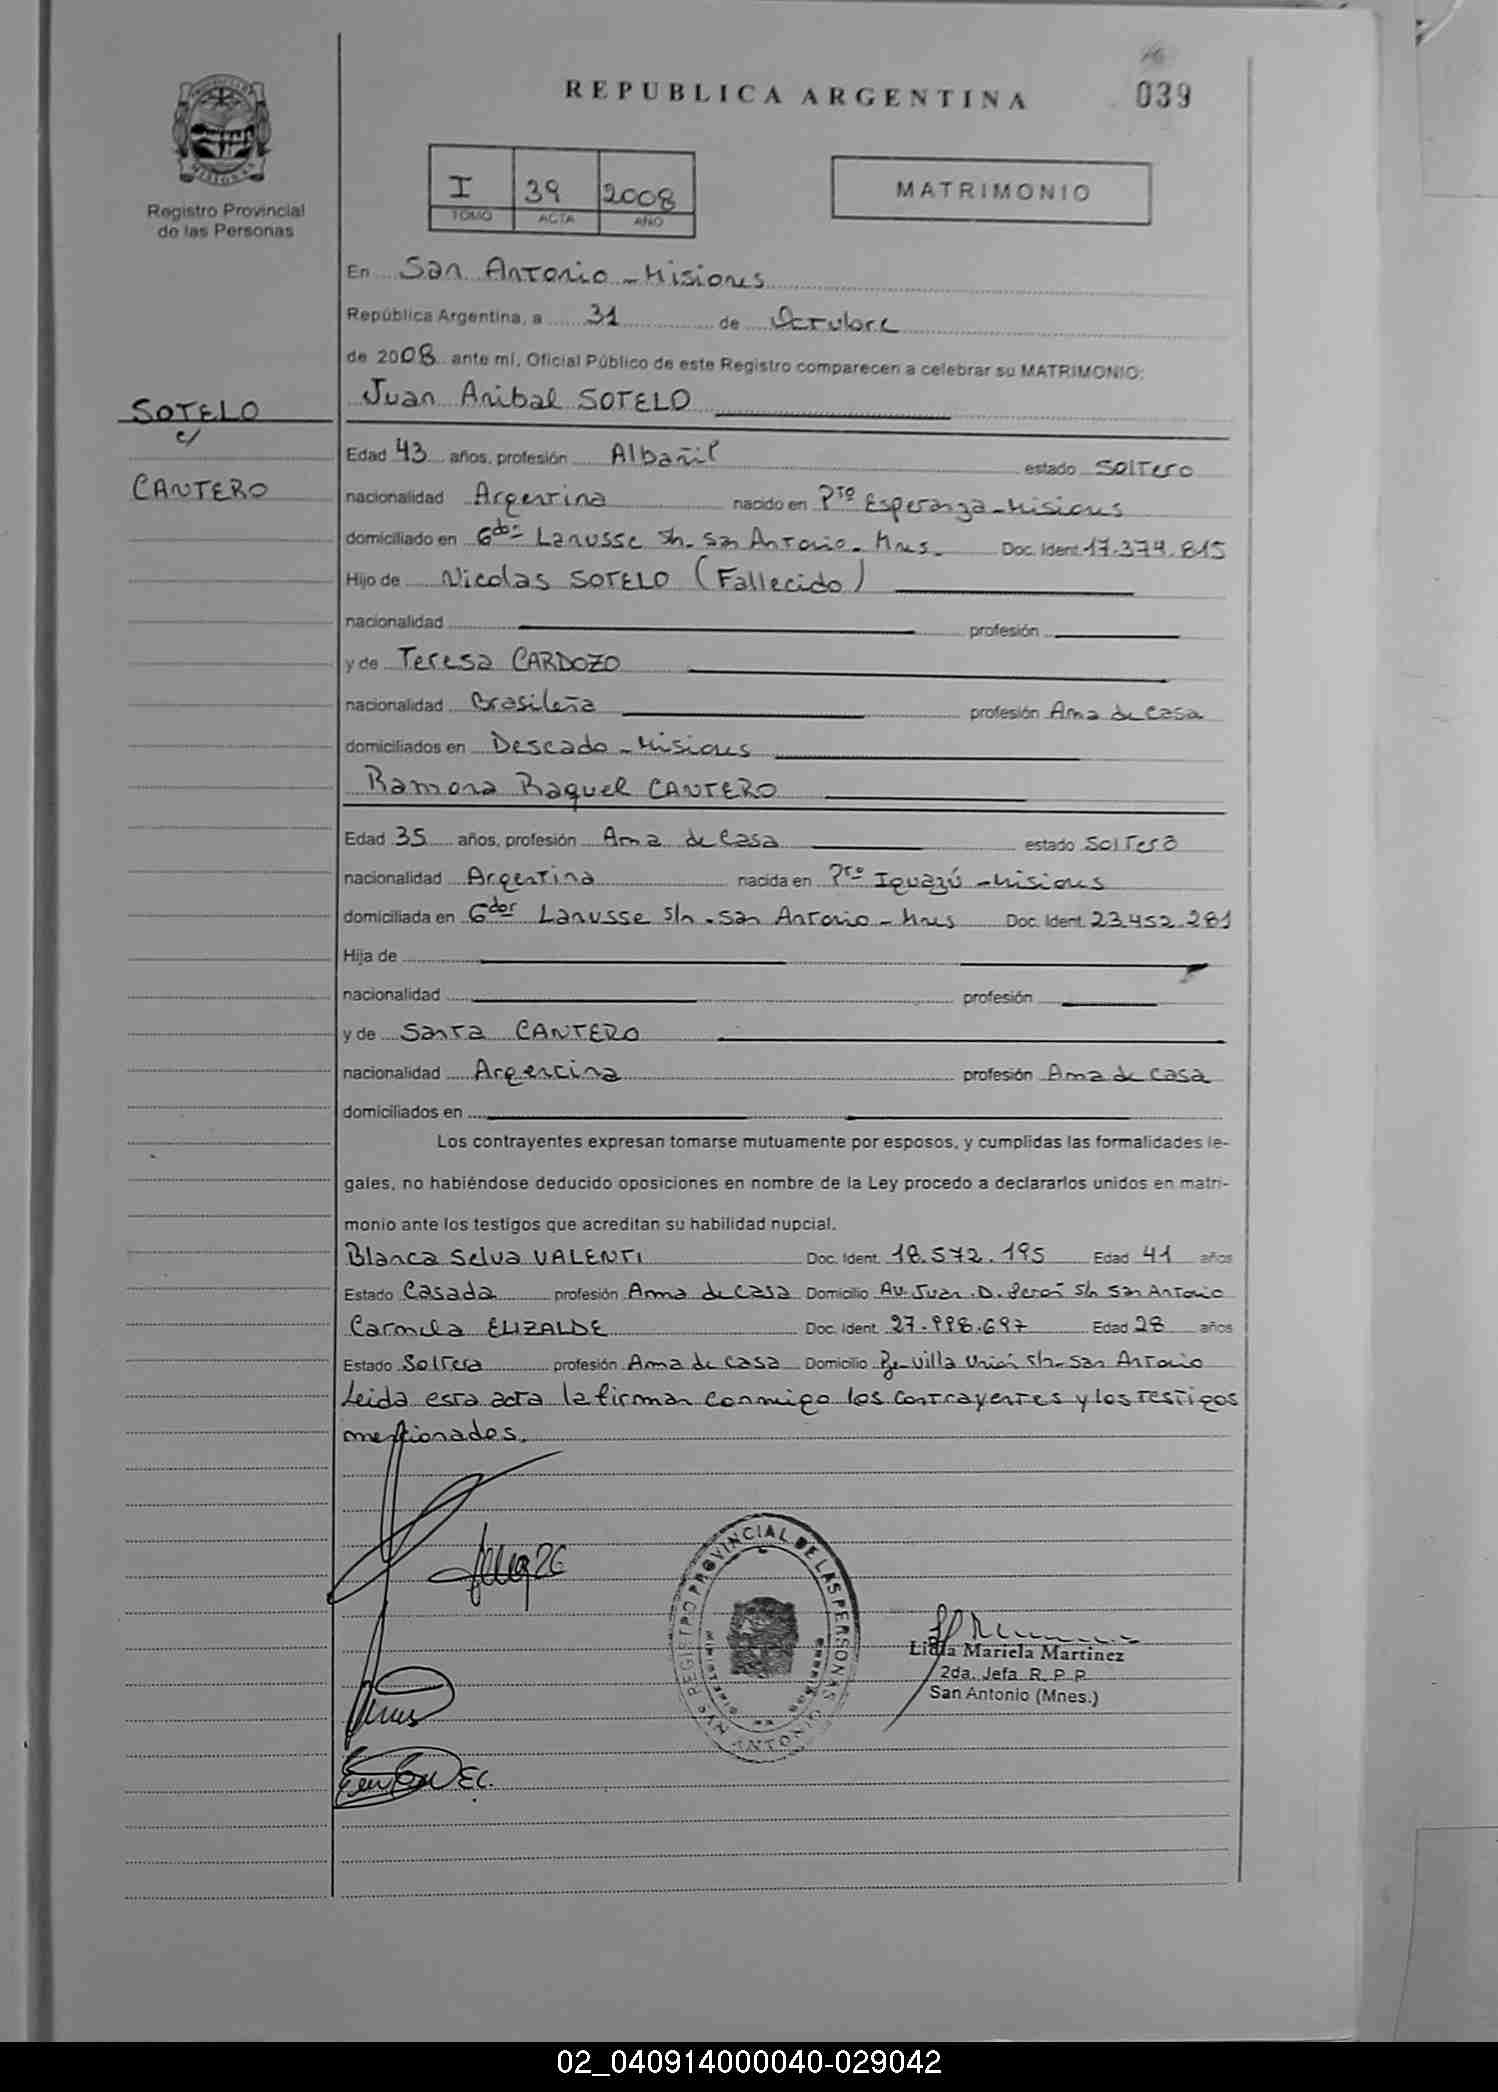 039
REPUBLICA ARGENTINA
Registro Provincial
de las Personas
I 39 2008
TOMO ACTA AÑO
MATRIMONIO
En San Antonio - Misiones
República Argentina, a 31 de Octubre
de 2008 ante mí, Oficial Público de este Registro comparecen a celebrar su MATRIMONIO:
Juan Anibal SOTELO
SOTELO
c/
CANTERO
Edad 43 años, profesión Albañil estado Soltero
nacionalidad Argentina nacido en Pto Esperanza - Misiones
domiciliado en Gdor Lanusse s/n. San Antonio - Mnes. Doc. Ident. 17.374.815
Hijo de Nicolas SOTELO (Fallecido)
nacionalidad profesión
y de Teresa CARDOZO
nacionalidad Brasileña profesión Ama de casa
domiciliados en Deseado - Misiones
Ramona Raquel CANTERO
Edad 35 años, profesión Ama de Casa estado Soltera
nacionalidad Argentina nacida en Pto Iguazú - Misiones
domiciliada en Gdor Lanusse s/n - San Antonio - Mnes Doc. Ident. 23.452.281
Hija de
nacionalidad profesión
y de Santa CANTERO
nacionalidad Argentina profesión Ama de casa
domiciliados en
Los contrayentes expresan tomarse mutuamente por esposos, y cumplidas las formalidades le-
gales, no habiéndose deducido oposiciones en nombre de la Ley procedo a declararlos unidos en matri-
monio ante los testigos que acreditan su habilidad nupcial.
Blanca Selva VALENTI Doc. Ident. 18.572.195 Edad 41 años
Estado Casada profesión Ama de casa Domicilio Av. Juan D. Perón s/n San Antonio
Carmela ELIZALDE Doc. Ident. 27.998.697 Edad 28 años
Estado Soltera profesión Ama de casa Domicilio Villa Unión s/n - San Antonio
Leida esta acta la firman conmigo los contrayentes y los testigos
mencionados.
REGISTRO PROVINCIAL DE LAS PERSONAS
SAN ANTONIO
Lidia Mariela Martinez
2da. Jefa R. P. P.
San Antonio (Mnes.)
02_040914000040-029042